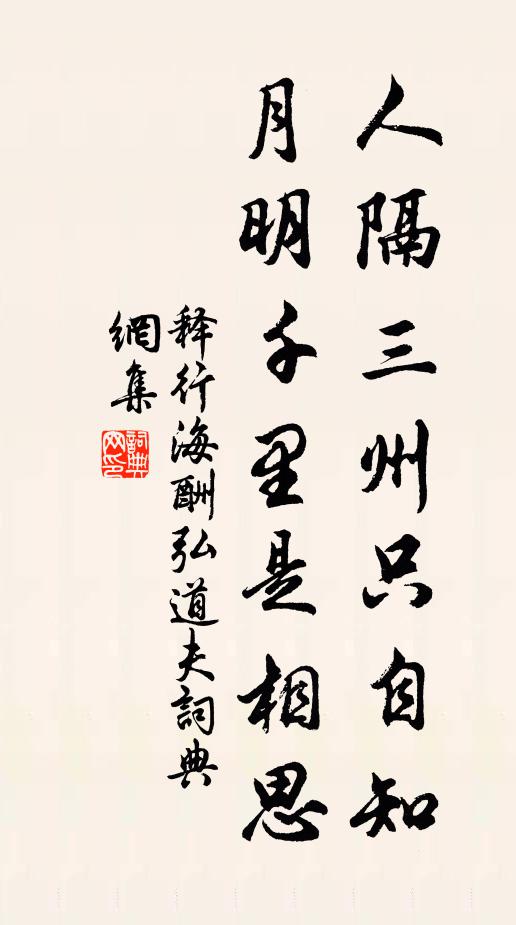 人隔三州只自知
月明千里是相思
释行海酬弘道夫詞典
網集
詞典
网印